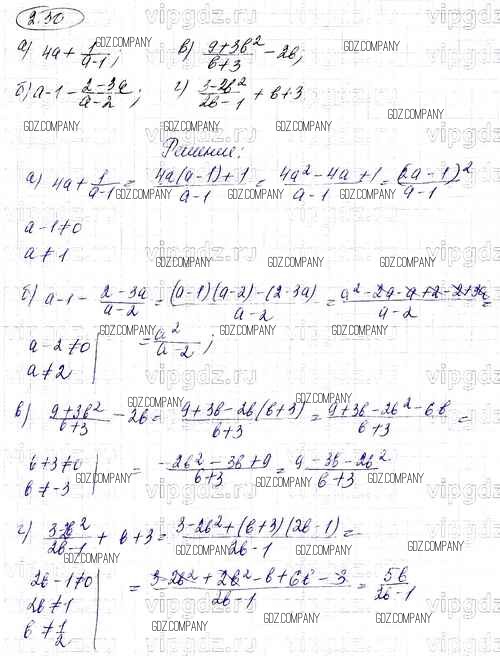 2.30
а) 4a + 1/(a-1); в) (9+3b²)/(b+3) - 2b;
б) a-1 - (2-3a)/(a-2); г) (3-2b²)/(2b-1) + b+3
Решение:
а) 4a + 1/(a-1) = (4a(a-1)+1)/(a-1) = (4a²-4a+1)/(a-1) = (2a-1)²/(a-1)
a-1≠0
a≠1
б) a-1 - (2-3a)/(a-2) = ((a-1)(a-2)-(2-3a))/(a-2) = (a²-2a-a+2-2+3a)/(a-2) =
a-2≠0 = a²/(a-2);
a≠2
в) (9+3b²)/(b+3) - 2b = (9+3b-2b(b+3))/(b+3) = (9+3b-2b²-6b)/(b+3) =
b+3≠0 = (-2b²-3b+9)/(b+3) = (9-3b-2b²)/(b+3)
b≠-3
г) (3-2b²)/(2b-1) + b+3 = (3-2b²+(b+3)(2b-1))/(2b-1) =
2b-1≠0 = (3-2b²+2b²-b+6b-3)/(2b-1) = 5b/(2b-1)
2b≠1
b≠1/2
GDZ.COMPANY
vipgdz.ru